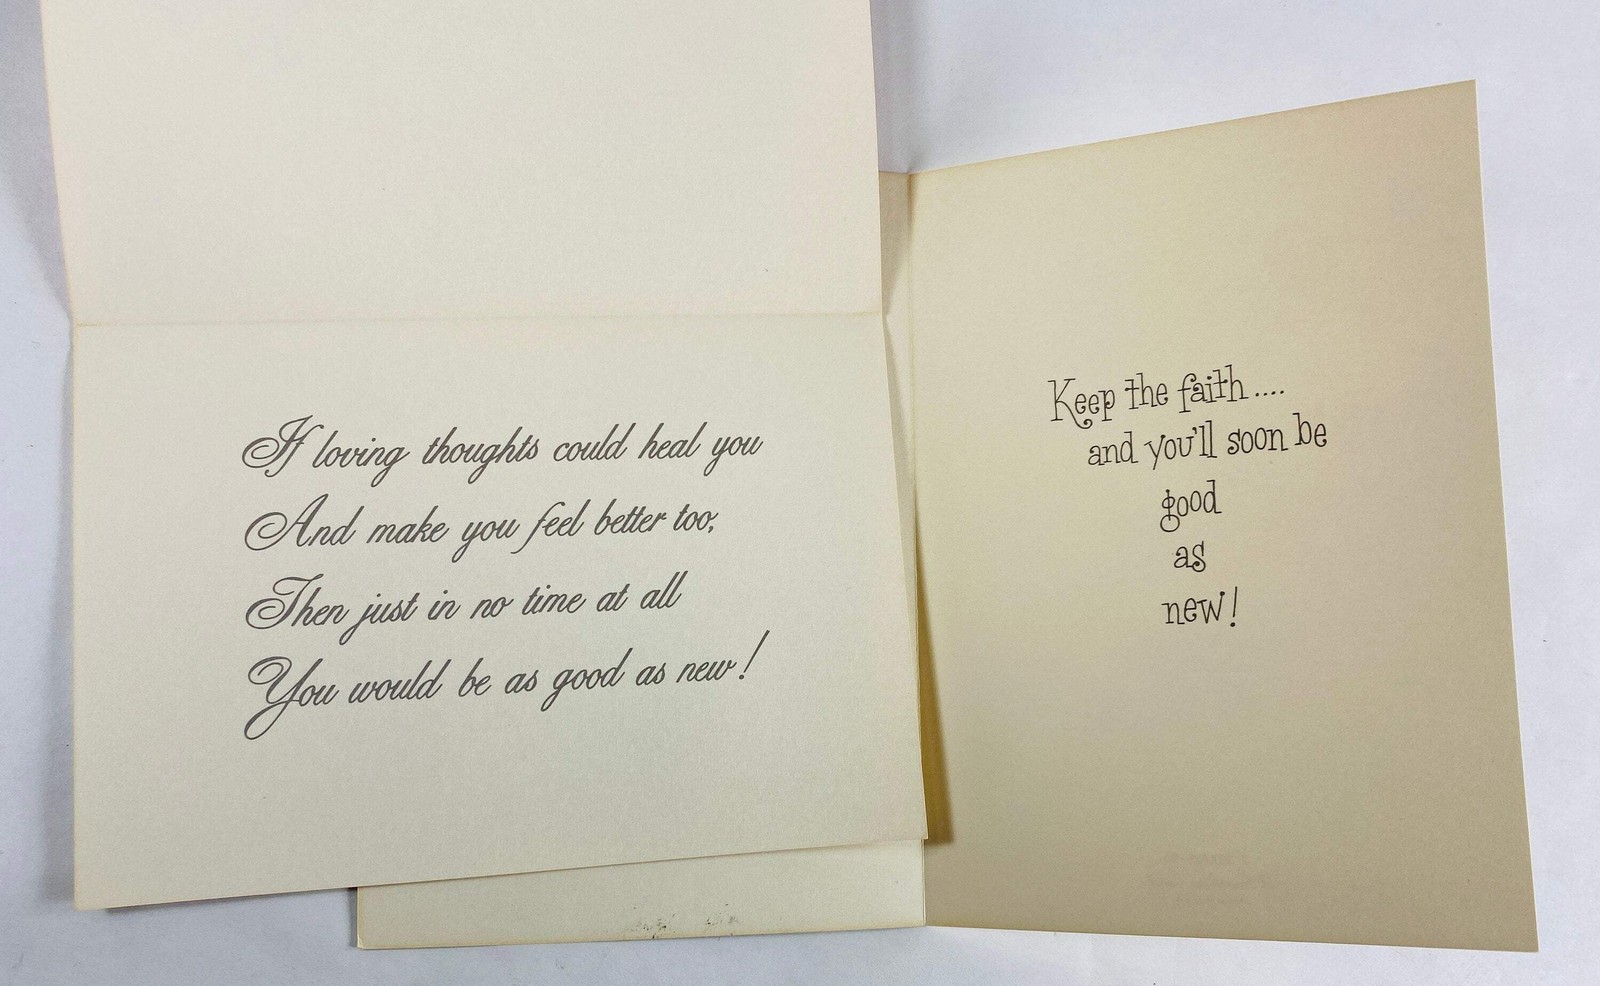 If loving thoughts could heal you
And make you feel better too,
Then just in no time at all
You would be as good as new!
Keep the faith....
and you'll soon be
good
as
new!